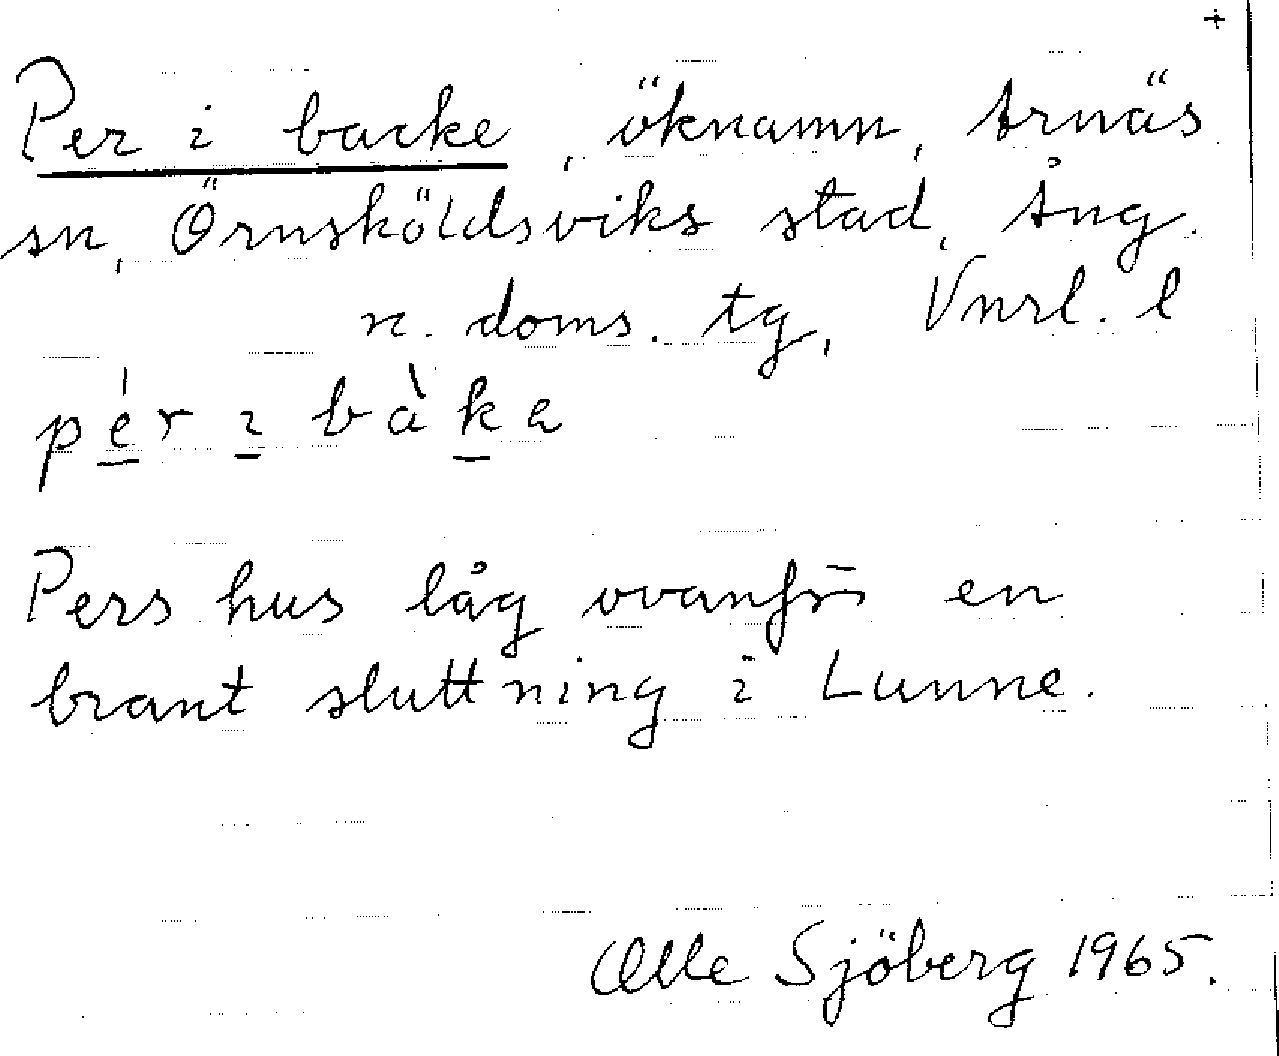 +
Per i backe, öknamn, Arnäs
sn, Örnsköldsviks stad, Ång.
n. doms. tg, Vnrl. l
pér ı bàka
Pers hus låg ovanför en
brant sluttning i Lunne.
Olle Sjöberg 1965.